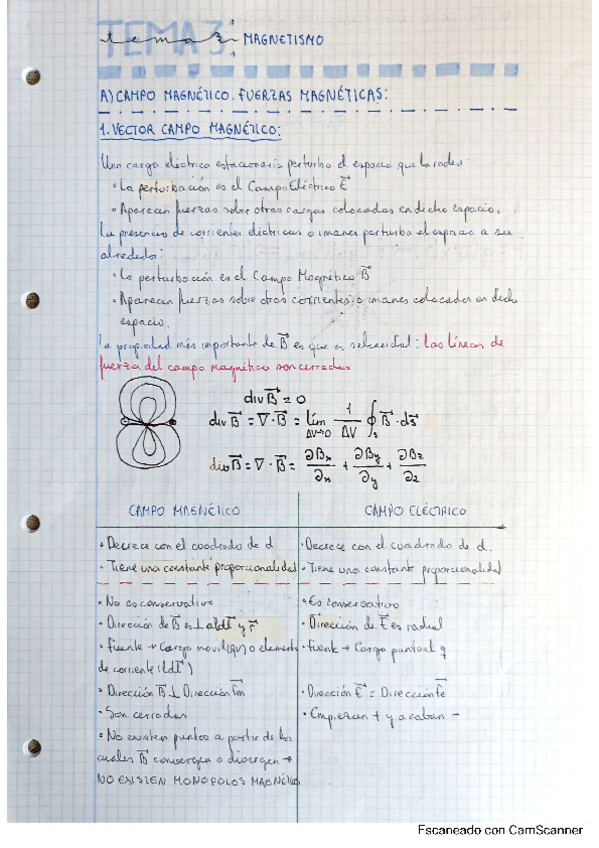 TEMA 3:
tema 3: MAGNETISMO
A) CAMPO MAGNÉTICO. FUERZAS MAGNÉTICAS:
1. VECTOR CAMPO MAGNÉTICO:
Una carga eléctrica estacionaria perturba el espacio que la rodea:
· La perturbación es el Campo Eléctrico E⃗
· Aparecen fuerzas sobre otras cargas colocadas en dicho espacio.
La presencia de corrientes eléctricas o imanes perturba el espacio a su
alrededor:
· La perturbación es el Campo Magnético B⃗
· Aparecen fuerzas sobre otras corrientes o imanes colocados en dicho
espacio.
La propiedad más importante de B⃗ es que es solenoidal: las líneas de
fuerza del campo magnético son cerradas
div B⃗ = 0
div B⃗ = ∇ · B⃗ = lím ΔV→0 1/ΔV ∮s B⃗ · ds⃗
div B⃗ = ∇ · B⃗ = ∂Bx/∂x + ∂By/∂y + ∂Bz/∂z
CAMPO MAGNÉTICO CAMPO ELÉCTRICO
· Decrece con el cuadrado de d · Decrece con el cuadrado de d.
· Tiene una constante proporcionalidad · Tiene una constante proporcionalidad
· No es conservativo · Es conservativo
· Dirección de B⃗ es ⊥ al dl⃗ y r⃗ · Dirección de E⃗ es radial
· Fuente → Carga móvil (qv) o elemento · Fuente → Carga puntual q
de corriente (Idl⃗)
· Dirección B⃗ ⊥ Dirección Fm · Dirección E⃗ = Dirección Fe
· Son cerradas · Empiezan + y acaban -
· No existen puntos a partir de los
cuales B⃗ convergen o divergen →
NO EXISTEN MONOPOLOS MAGNÉTICOS
Escaneado con CamScanner